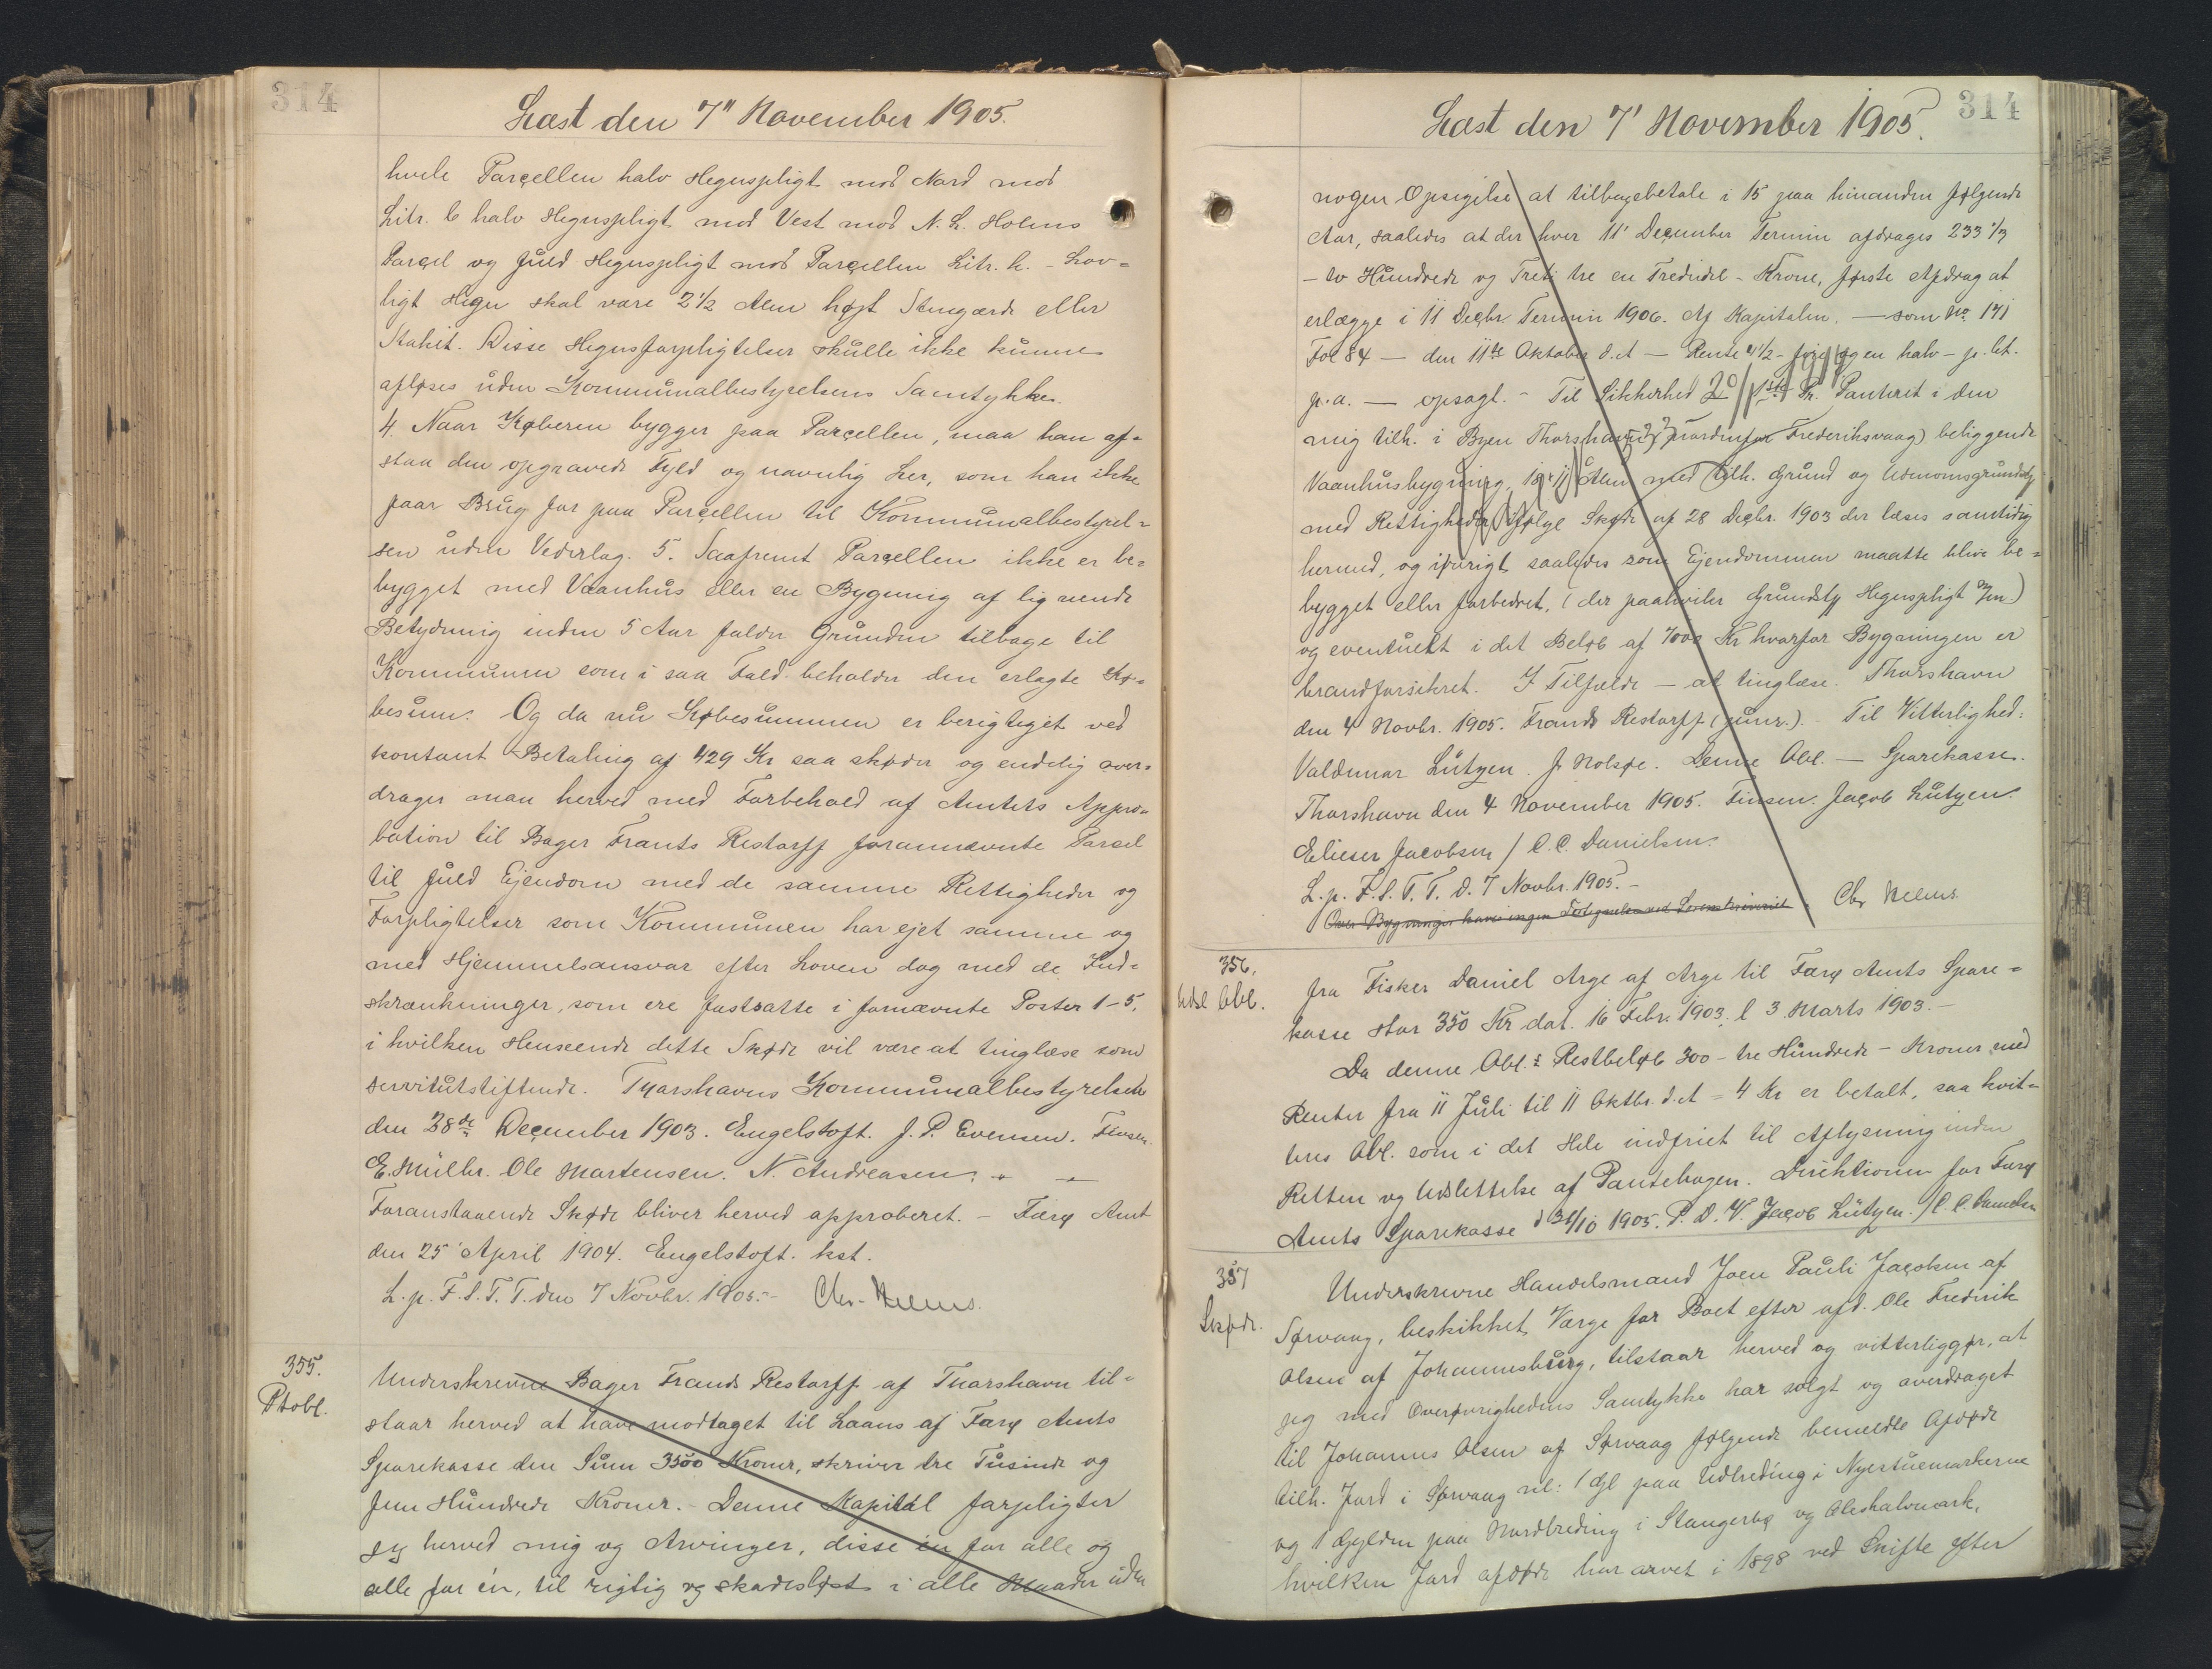 314
Læst den 7" November 1905.
hvile Parçellen halv Hegnspligt mod Nord mod
Litr. b halv Hegnspligt mod Vest mod N. L. Holms
Parçel og fuld Hegnspligt mod Parçellen Litr. h. - Lov=
ligt Hegn skal være 2 1/2 Alen højt Stengærde eller
Stakit. Disse Hegnsforpligtelser skulle ikke kunne
afløses uden Kommunalbestyrelsens Samtykke.
4. Naar Køberen bygger paa Parçellen, maa han af=
staa den opgravede Fyld og navnlig Ler, som han ikke
faar Brug for paa Parçellen til Kommunalbestyrel=
sen uden Vederlag. 5. Saafremt Parçellen ikke er be=
bygget med Vaanhus eller en Bygning af lignende
Betydning inden 5 Aar falder Grunden tilbage til
Kommunen som i saa Fald beholder den erlagte Kø=
besum. Og da nu Købesummen er berigtiget ved
kontant Betaling af 429 Kr saa skøder og endelig over=
drager man herved med Forbehold af Amtets Appro=
bation til Bager Frants Restorff forannævnte Parcel
til fuld Ejendom med de samme Rettigheder og
Forpligtelser som Kommunen har ejet samme og
med Hjemmelsansvar efter Loven dog med de Ind=
skrænkninger, som ere fastsatte i fornævnte Poster 1-5.
i hvilken Henseende dette Skøde vil være at tinglæse som
servitutstiftende. Thorshavns Kommunalbestyrelse
den 28de December 1903. Engelstoft. J. P. Evensen. Finsen.
E. Müller. Ole Mortensen. N. Andreasen.
Foranstaaende Skøde bliver herved approberet. - Færø Amt
den 25' April 1904. Engelstoft. kst.
L. p. F. S. T. T. den 7 Novbr. 1905.- Chr. Nelms.
355.
Ptobl.
Underskrevne Bager Frands Restorff af Thorshavn til=
staar herved at have modtaget til Laans af Færø Amts
Sparekasse den Sum 3500 Kroner, skriver tre Tusinde og
fem Hundrede Kroner. - Denne Kapital forpligter
jeg herved mig og Arvinger, disse én for alle og
alle for én, til rigtig og skadesløst i alle Maader uden
314
Læst den 7' November 1905.
nogen Opsigelse at tilbagebetale i 15 paa hinanden følgende
Aar, saaledes at der hver 11' December Termin afdrages 233 1/3
- to Hundrede og Treti tre en Trediedel - Krone, første Afdrag at
erlægge i 11 Decbr. Termin 1906. Af Kapitalen. — som No. 141
Fol 84 — den 11te Oktober d.A — Rente 4 1/2 - fire og en halv - p. Ct.
p.a. — opsagt. - Til Sikkerhed 1ste Pr. Panteret i den
mig tilh. i Byen Thorshavn nordenfor Frederiksvaag) beliggende
Vaanhusbygning, Alen med tilh. Grund og Udenomsgrund
med Rettigheder ifølge Skøde af 28 Decbr. 1903 der læses samtidig
hermed, og iøvrigt saaledes som Ejendommen maatte blive be=
bygget eller forbedret, (der paahviler Hegnspligt
og eventuelt i det Beløb af 7000 Kr hvorfor Bygningen er
brandforsikret. I Tilfælde — at tinglæse. Thorshavn
den 4 Novbr. 1905. Frands Restorff (junr.). - Til Vitterlighed:
Valdemar Lützen. J. Holsøe. Denne Obl. — Sparekasse.
Thorshavn den 4 November 1905. Finsen. Jacob Lützen.
Elieser Jacobsen / C. C. Danielsen.
L. p. F. S. T. T. d. 7 Novbr. 1905. -
Over Bygninger haves ingen ved Sorenskriveriet. Chr. Nelms.
356.
Udsl Obl.
fra Fisker Daniel Arge af Arge til Færø Amts Spare=
kasse stor 350 Kr dat. 16 Febr. 1903. l 3 Marts 1903. -
Da denne Obl.s Restbeløb 300 - tre Hundrede - Kroner med
Renter fra 11 Juli til 11 Oktbr. d.A = 4 Kr er betalt, saa kvit=
teres Obl. som i det Hele indfriet til Aflysning inden
Retten og Udslettelse af Pantebogen. Direktionen for Færø
Amts Sparekasse d 31/10 1905. P. D. V. Jacob Lützen. / C. C. Danielsen
357
Skøde.
Underskrevne Handelsmand Joen Pauli Jacobsen af
Sørvaag, beskikket Værge for Boet efter afd. Ole Fredrik
Olsen af Johannesburg, tilstaar herved og vitterliggør, at
jeg med Overøvrighedens Samtykke har solgt og overdraget
til Johannes Olsen af Sørvaag følgende bemeldte Afdøde
tilh. Jord i Sørvaag nl: 1 Gl paa Udbreding i Nyestuemarkerne
og 1 Gylden paa Nordbreding i Stangerbø og Oleshalvmark,
hvilken Jord afdøde har arvet i 1898 ved Skifte efter